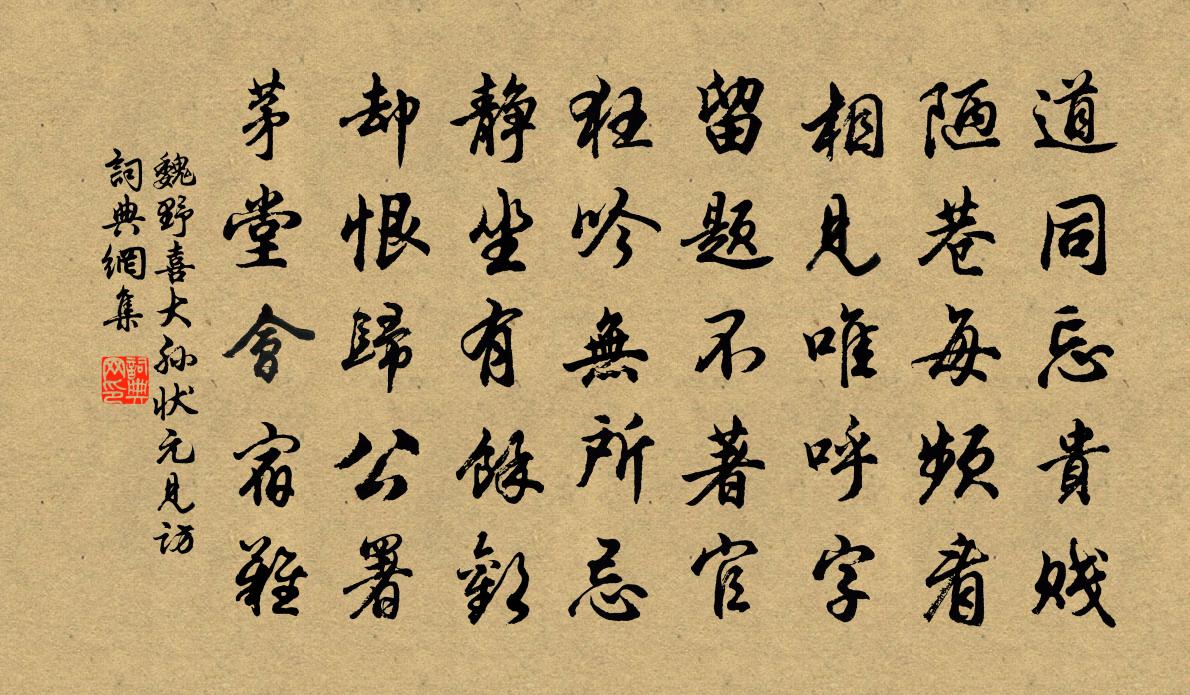 道同忘貴賤
陋巷每頻看
相見唯呼字
留題不著官
狂吟無所忌
靜坐有餘歡
却恨歸公署
茅堂會宿難
魏野喜大孫状元見訪
詞典網集
詞典网印